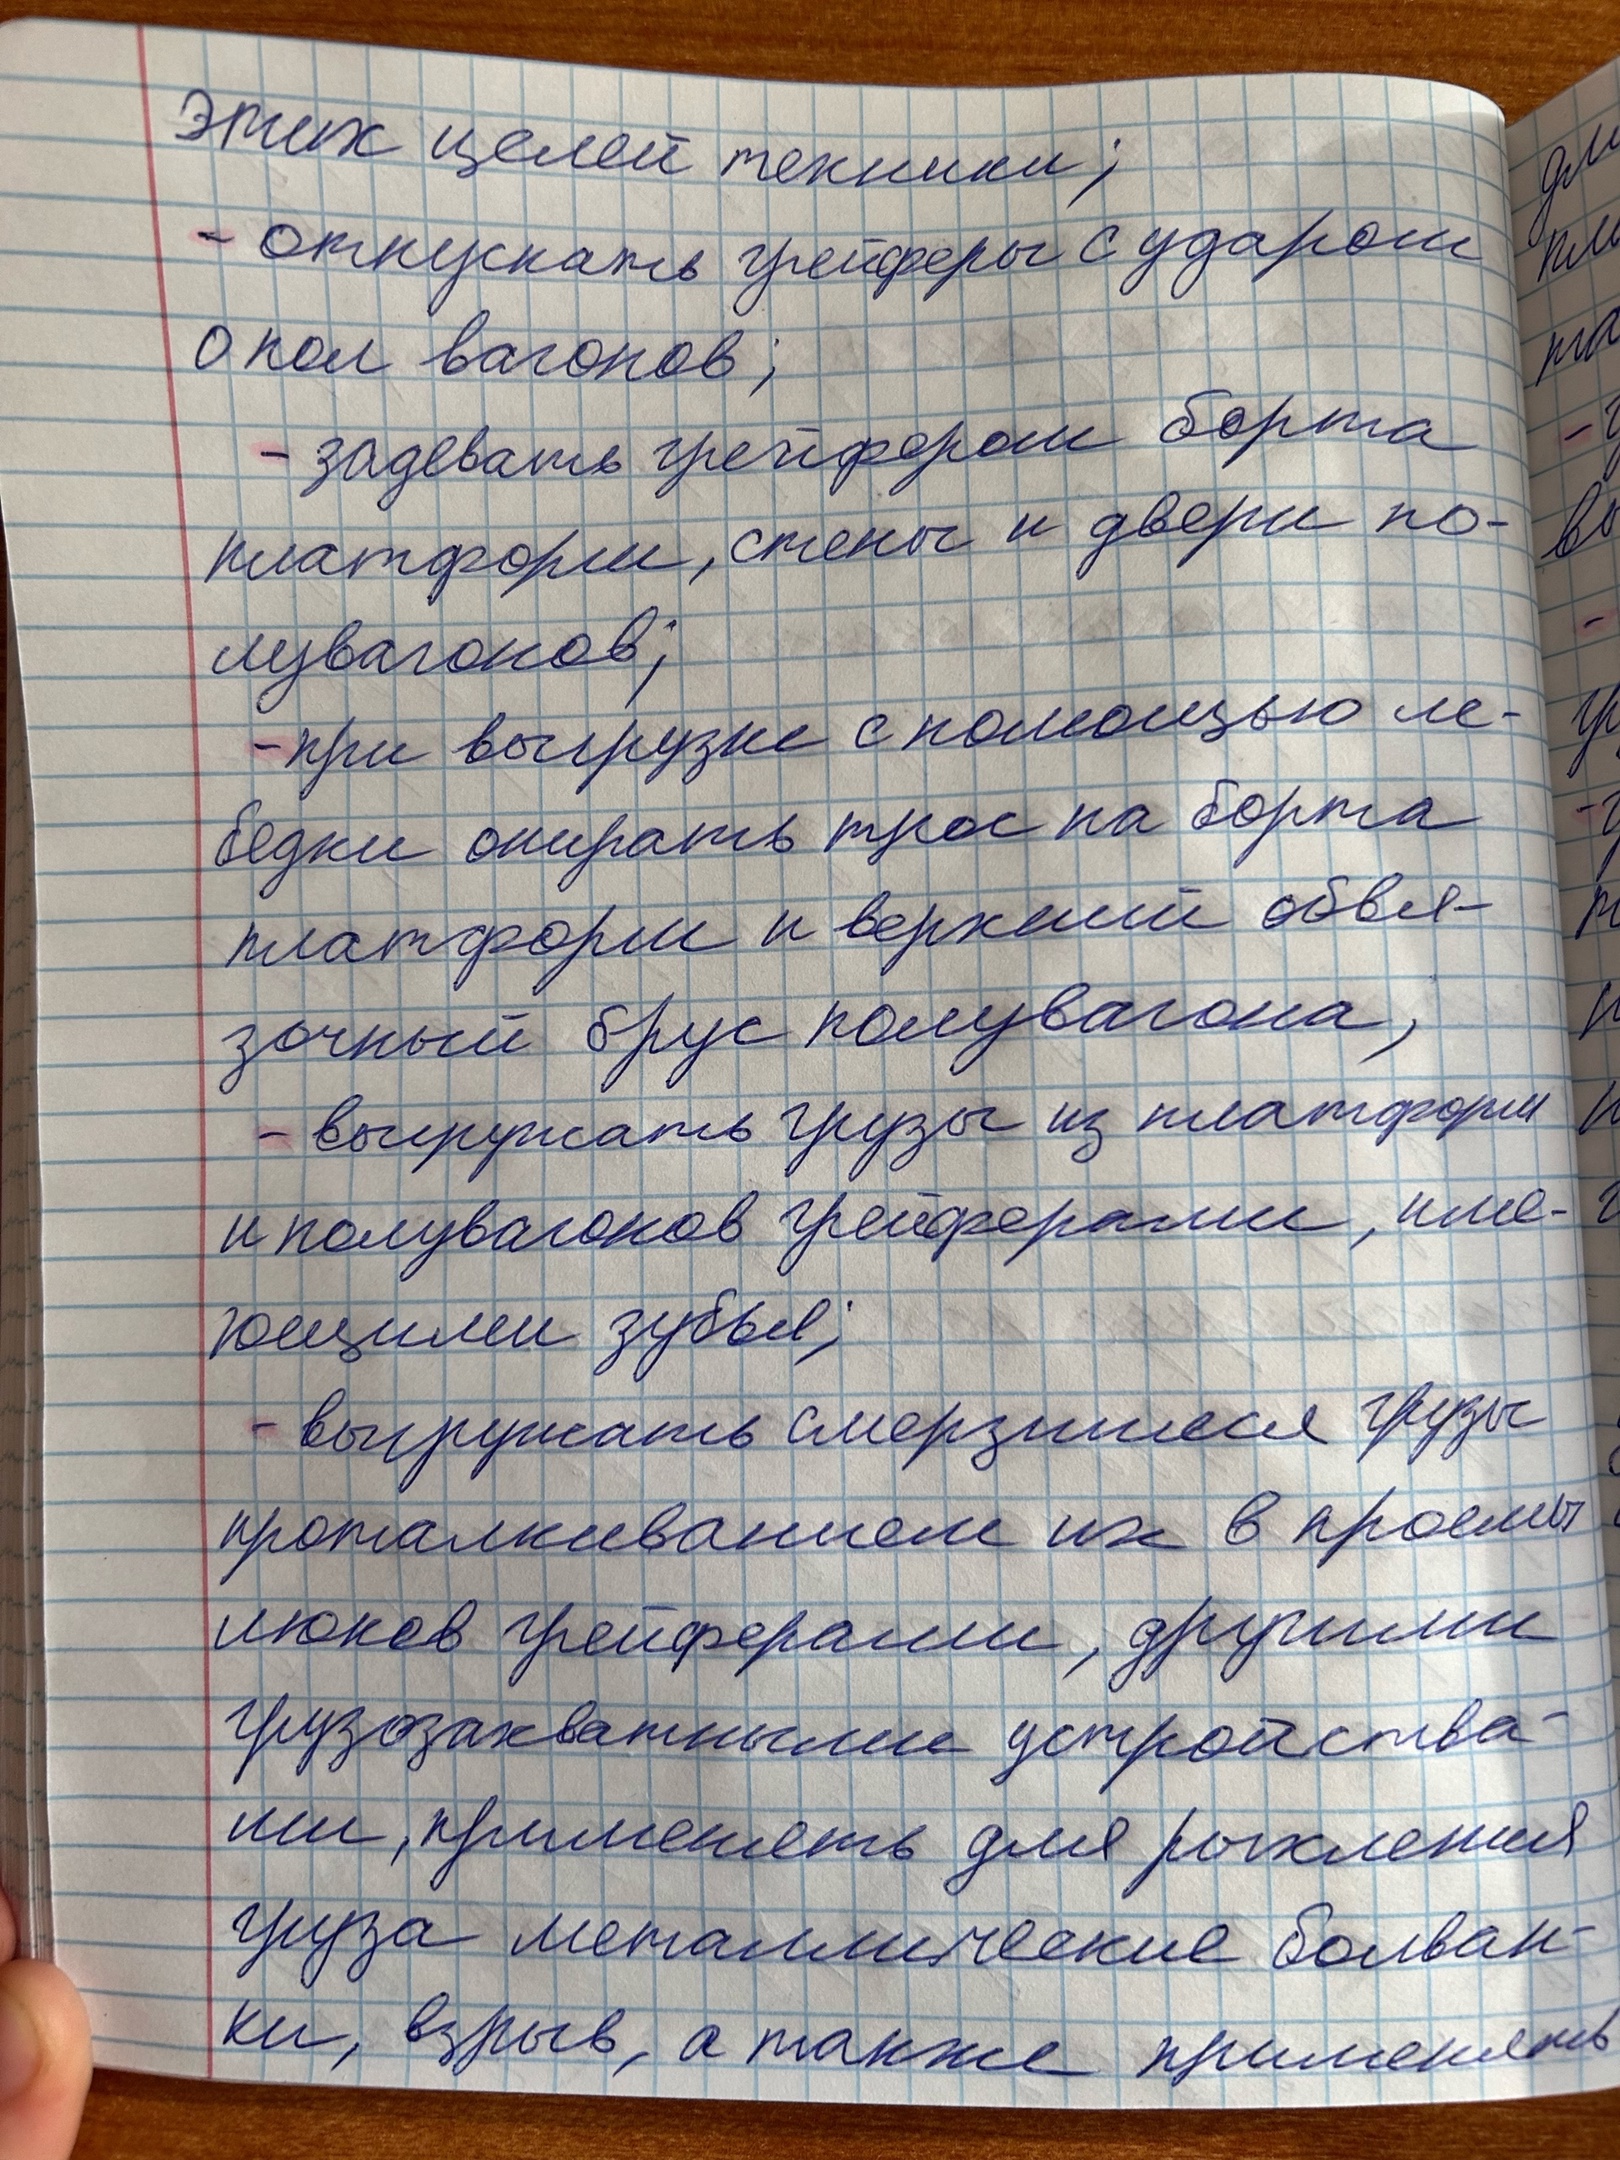 этих целей техники;
- отпускать грейферы с ударом
о пол вагонов;
- задевать грейфером борта
платформ, стены и двери по-
лувагонов;
- при выгрузке с помощью ле-
бедки опирать трос на борта
платформ и верхний обвя-
зочный брус полувагона;
- выгружать грузы из платформ
и полувагонов грейферами, име-
ющими зубья;
- выгружать смерзшиеся грузы
проталкиванием их в проемы
люков грейферами, другими
грузозахватными устройства-
ми, применять для рыхления
груза металлические болван-
ки, взрыв, а также применять